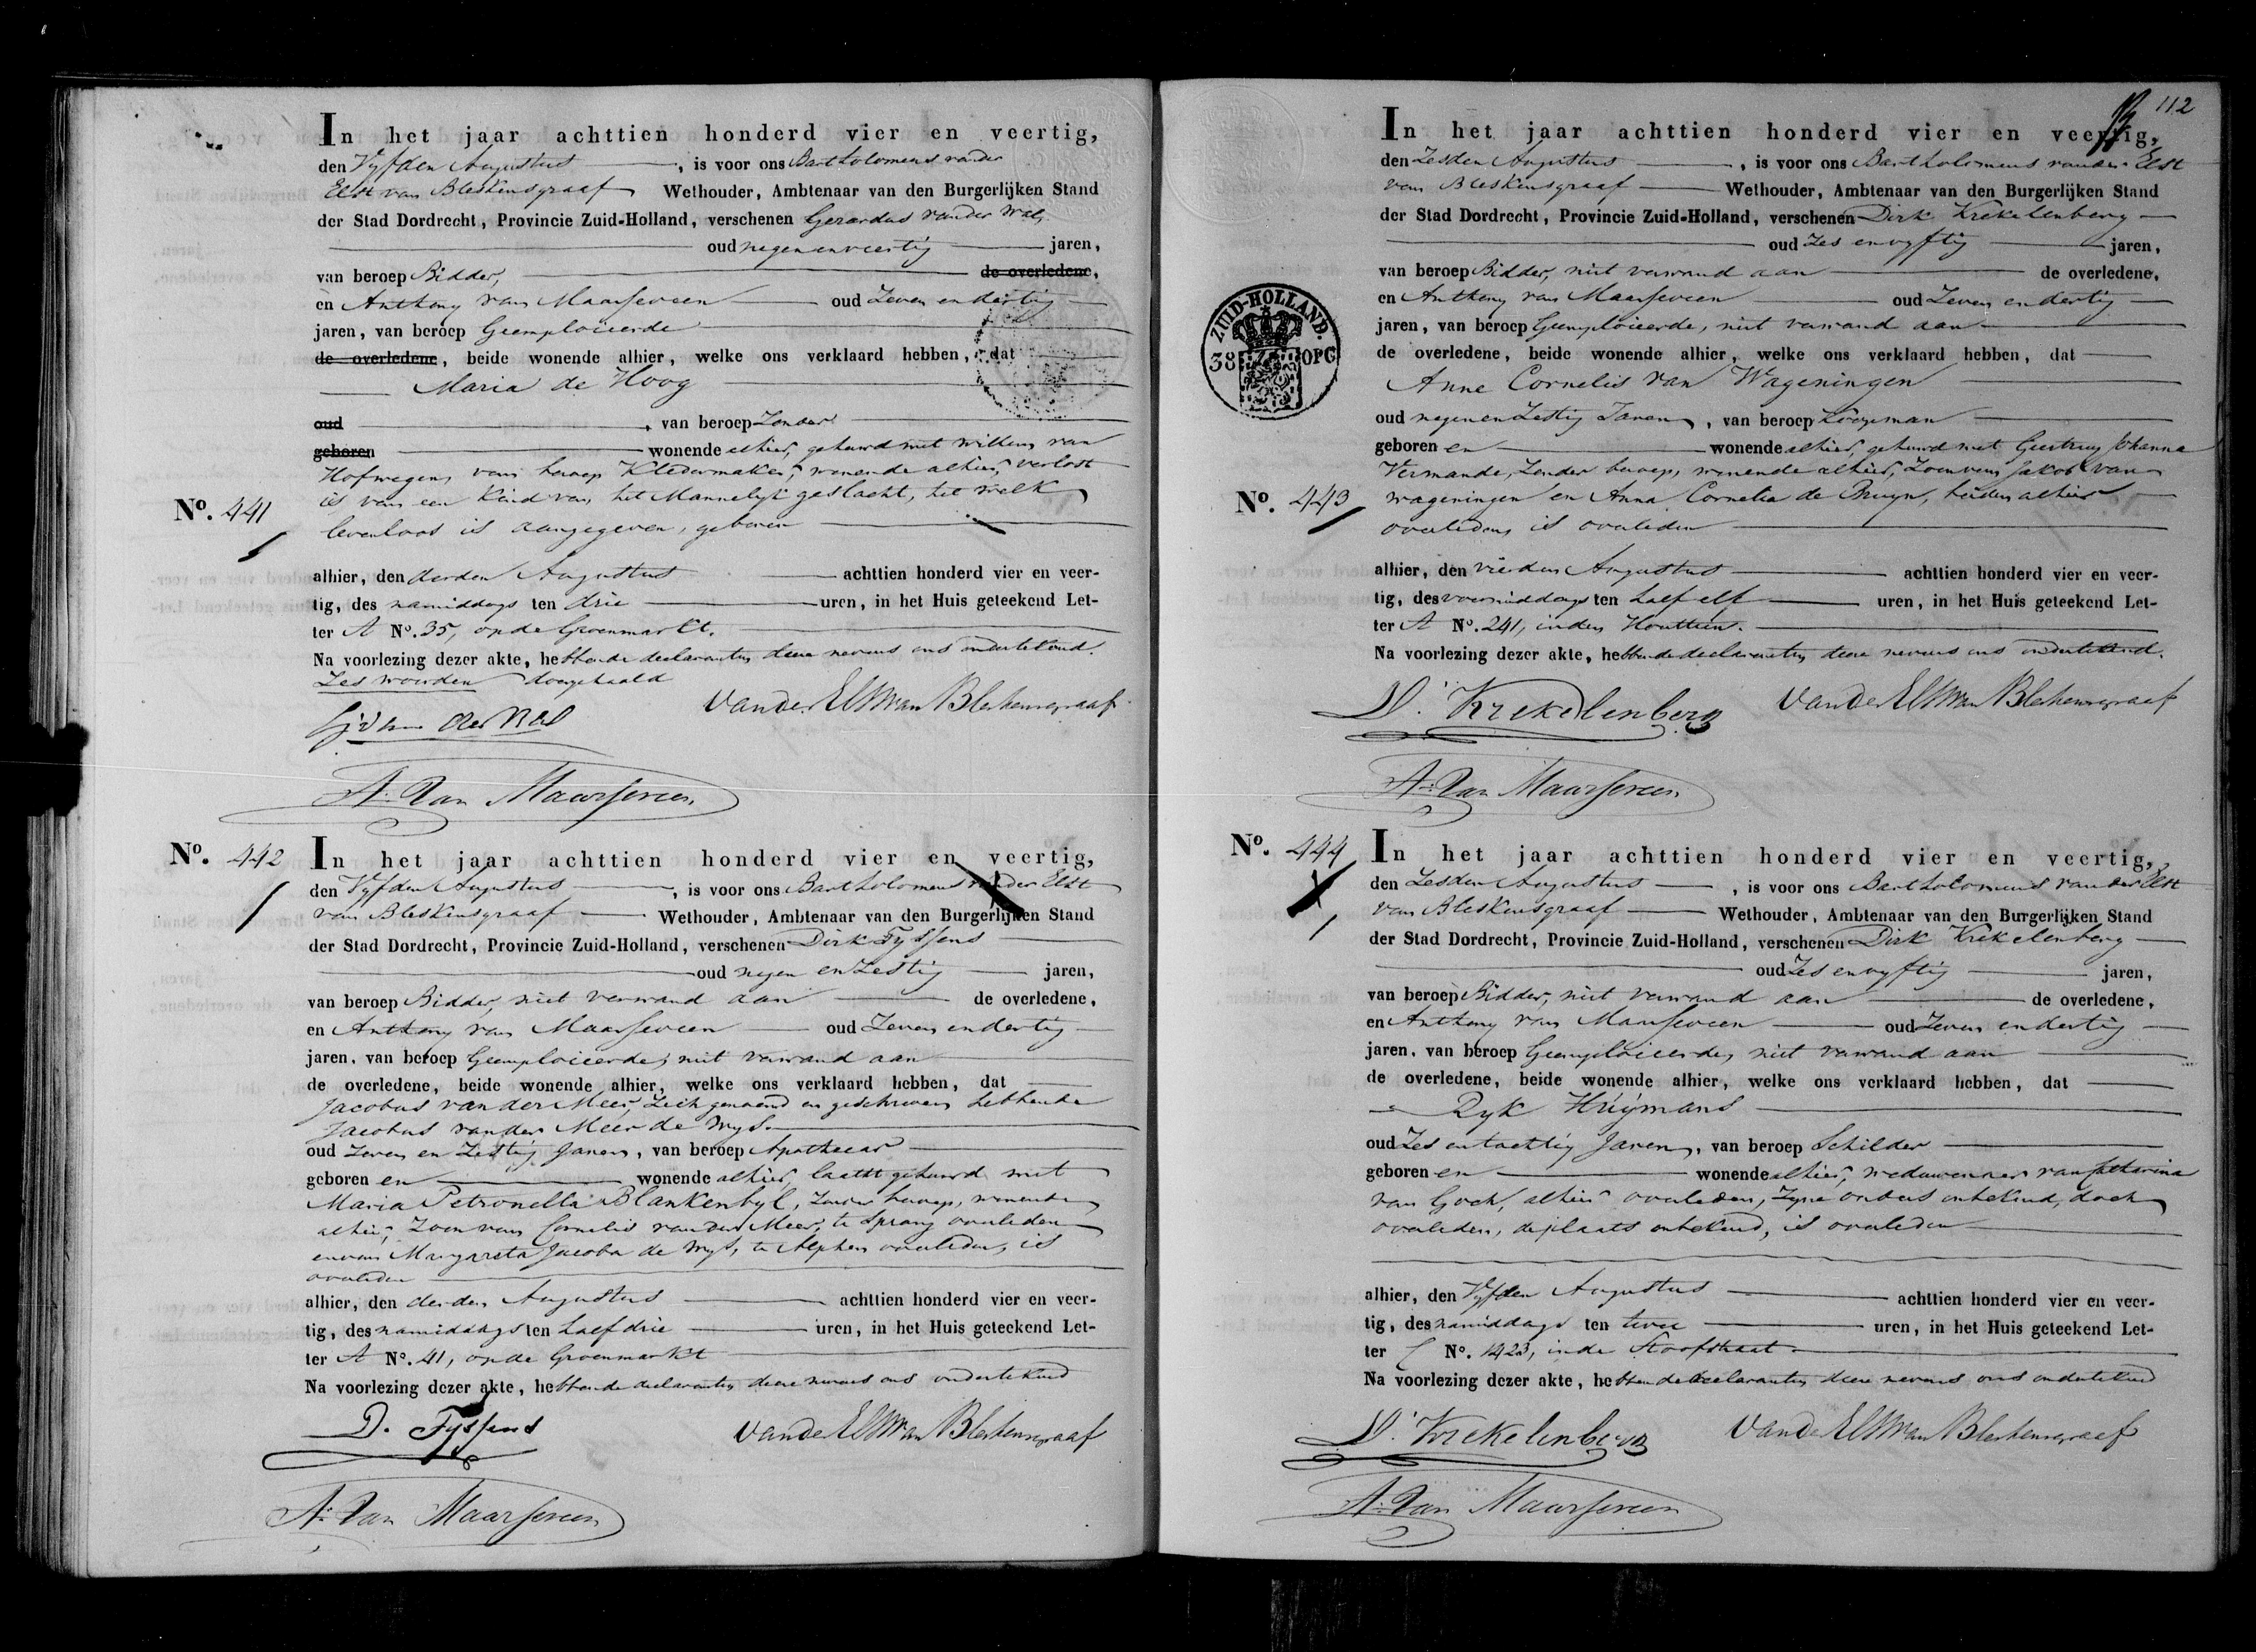 In het jaar achttien honderd vier en veertig,
den Vyfden Augustus, is voor ons Bartholomeus vander
Elst van Bleskensgraaf Wethouder, Ambtenaar van den Burgerlijken Stand
der Stad Dordrecht, Provincie Zuid-Holland, verschenen Gerardus vander
oud negenenveertig jaren,
van beroep Bidder, de overledene,
en Anthony van Maarseveen oud Zeven en dertig
jaren, van beroep Geemploieerde
de overledene, beide wonende alhier, welke ons verklaard hebben, dat
Maria de Hoog
oud, van beroep Zonder
geboren wonende alhier, gehuwd met Willem van
Hofwegen, van beroep Kledermaker, wonende alhier, verlost
is van een Kind van het Mannelyk geslacht, het welk
No. 441
levenloos is aangegeven, geboren
alhier, den derden Augustus achttien honderd vier en veer-
tig, des namiddags ten drie uren, in het Huis geteekend Let-
ter A No. 35, op de Groenmarkt.
Na voorlezing dezer akte, hebbende declaranten deze nevens ons ondertekend.
Zes woorden doorgehaald
van der Elst van Bleskensgraaf
A. van Maarseveen
No. 442
In het jaar achttien honderd vier en veertig,
den Vyfden Augustus, is voor ons Bartholomeus vander Elst
van Bleskensgraaf Wethouder, Ambtenaar van den Burgerlijken Stand
der Stad Dordrecht, Provincie Zuid-Holland, verschenen Dirk Tyssens
oud negen en Zestig jaren,
van beroep Bidder, niet verwand aan de overledene,
en Anthony van Maarseveen oud Zeven en dertig
jaren, van beroep Geemploieerde, niet verwand aan
de overledene, beide wonende alhier, welke ons verklaard hebben, dat
Jacobus van der Meer, Zich genoemd en geschreven hebbende
Jacobus vander Meer de Wys
oud Zeven en Zestig Jaren, van beroep Apothecar
geboren en wonende alhier, laatst gehuwd met
Maria Petronella Blankenbyl, Zonder beroep, wonende
alhier, Zoon van Cornelis vander Meer, te Sprang overleden
en van Margareta Jacoba de Wys, te Alphen overleden, is
overleden
alhier, den derden Augustus achttien honderd vier en veer-
tig, des namiddags ten half drie uren, in het Huis geteekend Let-
ter A No. 41, op de Groenmarkt
Na voorlezing dezer akte, hebbende declaranten deze nevens ons ondertekend
D. Tyssens van der Elst van Bleskensgraaf
A. van Maarseveen
112
In het jaar achttien honderd vier en veertig,
den Zesden Augustus, is voor ons Bartholomeus vander Elst
van Bleskensgraaf Wethouder, Ambtenaar van den Burgerlijken Stand
der Stad Dordrecht, Provincie Zuid-Holland, verschenen Dirk Krekelenberg
oud Zes en vyftig jaren,
van beroep Bidder, niet verwand aan de overledene,
en Anthony van Maarseveen oud Zeven en dertig
jaren, van beroep Geemploieerde, niet verwand aan
de overledene, beide wonende alhier, welke ons verklaard hebben, dat
ZUID-HOLLAND.
38 OPC
Anne Cornelis van Wageningen
oud negen en Zestig Jaren, van beroep Koopman
geboren en wonende alhier, gehuwd met Geertruy Johanna
Vermande, Zonder beroep, wonende alhier, Zoon van Jakob van
No. 443
Wageningen en Anna Cornelia de Bruyn, beiden alhier
overleden, is overleden
alhier, den vierden Augustus achttien honderd vier en veer-
tig, des voormiddags ten half elf uren, in het Huis geteekend Let-
ter A No. 241, inden Houttuin.
Na voorlezing dezer akte, hebbende declaranten deze nevens ons ondertekend.
D. Krekelenberg van der Elst van Bleskensgraaf
A. van Maarseveen
No. 444
In het jaar achttien honderd vier en veertig,
den Zesden Augustus, is voor ons Bartholomeus vander Elst
van Bleskensgraaf Wethouder, Ambtenaar van den Burgerlijken Stand
der Stad Dordrecht, Provincie Zuid-Holland, verschenen Dirk Krekelenberg
oud Zes en vyftig jaren,
van beroep Bidder, niet verwand aan de overledene,
en Anthony van Maarseveen oud Zeven en dertig
jaren, van beroep Geemploieerde, niet verwand aan
de overledene, beide wonende alhier, welke ons verklaard hebben, dat
Ryk Huymans
oud Zes en tachtig Jaren, van beroep Schilder
geboren en wonende alhier, weduwenaar van Catharina
van Goch, alhier overleden, Zyne ouders onbekend, doch
overleden, de plaats onbekend, is overleden
alhier, den Vyfden Augustus achttien honderd vier en veer-
tig, des namiddags ten twee uren, in het Huis geteekend Let-
ter C No. 1423, in de Stoofstraat
Na voorlezing dezer akte, hebbende declaranten deze nevens ons ondertekend
D. Krekelenberg van der Elst van Bleskensgraaf
A. van Maarseveen